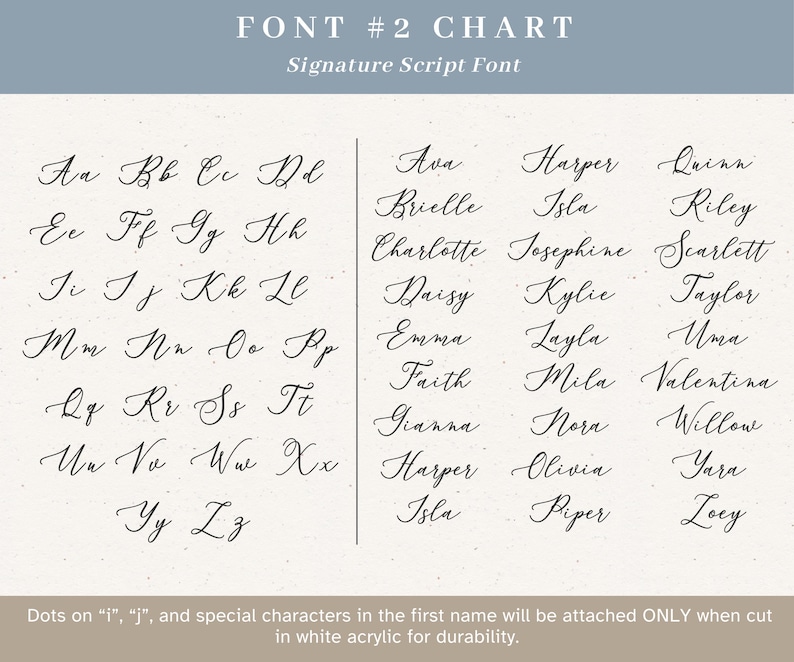 FONT #2 CHART
Signature Script Font
Aa Bb Cc Dd
Ee Ff Gg Hh
Ii Jj Kk Ll
Mm Nn Oo Pp
Qq Rr Ss Tt
Uu Vv Ww Xx
Yy Zz
Ava Harper Quinn
Brielle Isla Riley
Charlotte Josephine Scarlett
Daisy Kylie Taylor
Emma Layla Uma
Faith Mila Valentina
Gianna Nora Willow
Harper Olivia Yara
Isla Piper Zoey
Dots on “i”, “j”, and special characters in the first name will be attached ONLY when cut
in white acrylic for durability.